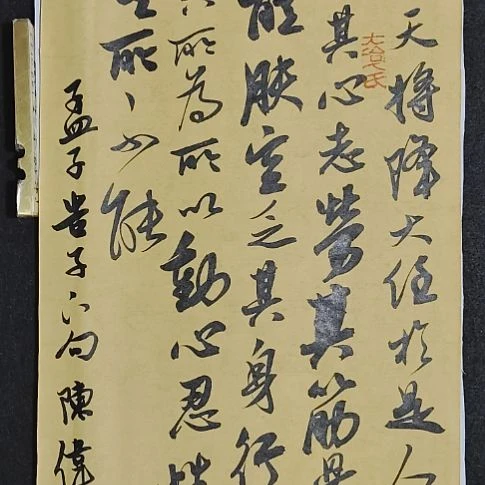 天将降大任於是人
其心志勞其筋骨
肤空乏其身行
所為所以動心忍
所不能
孟子告子下句 陳偉